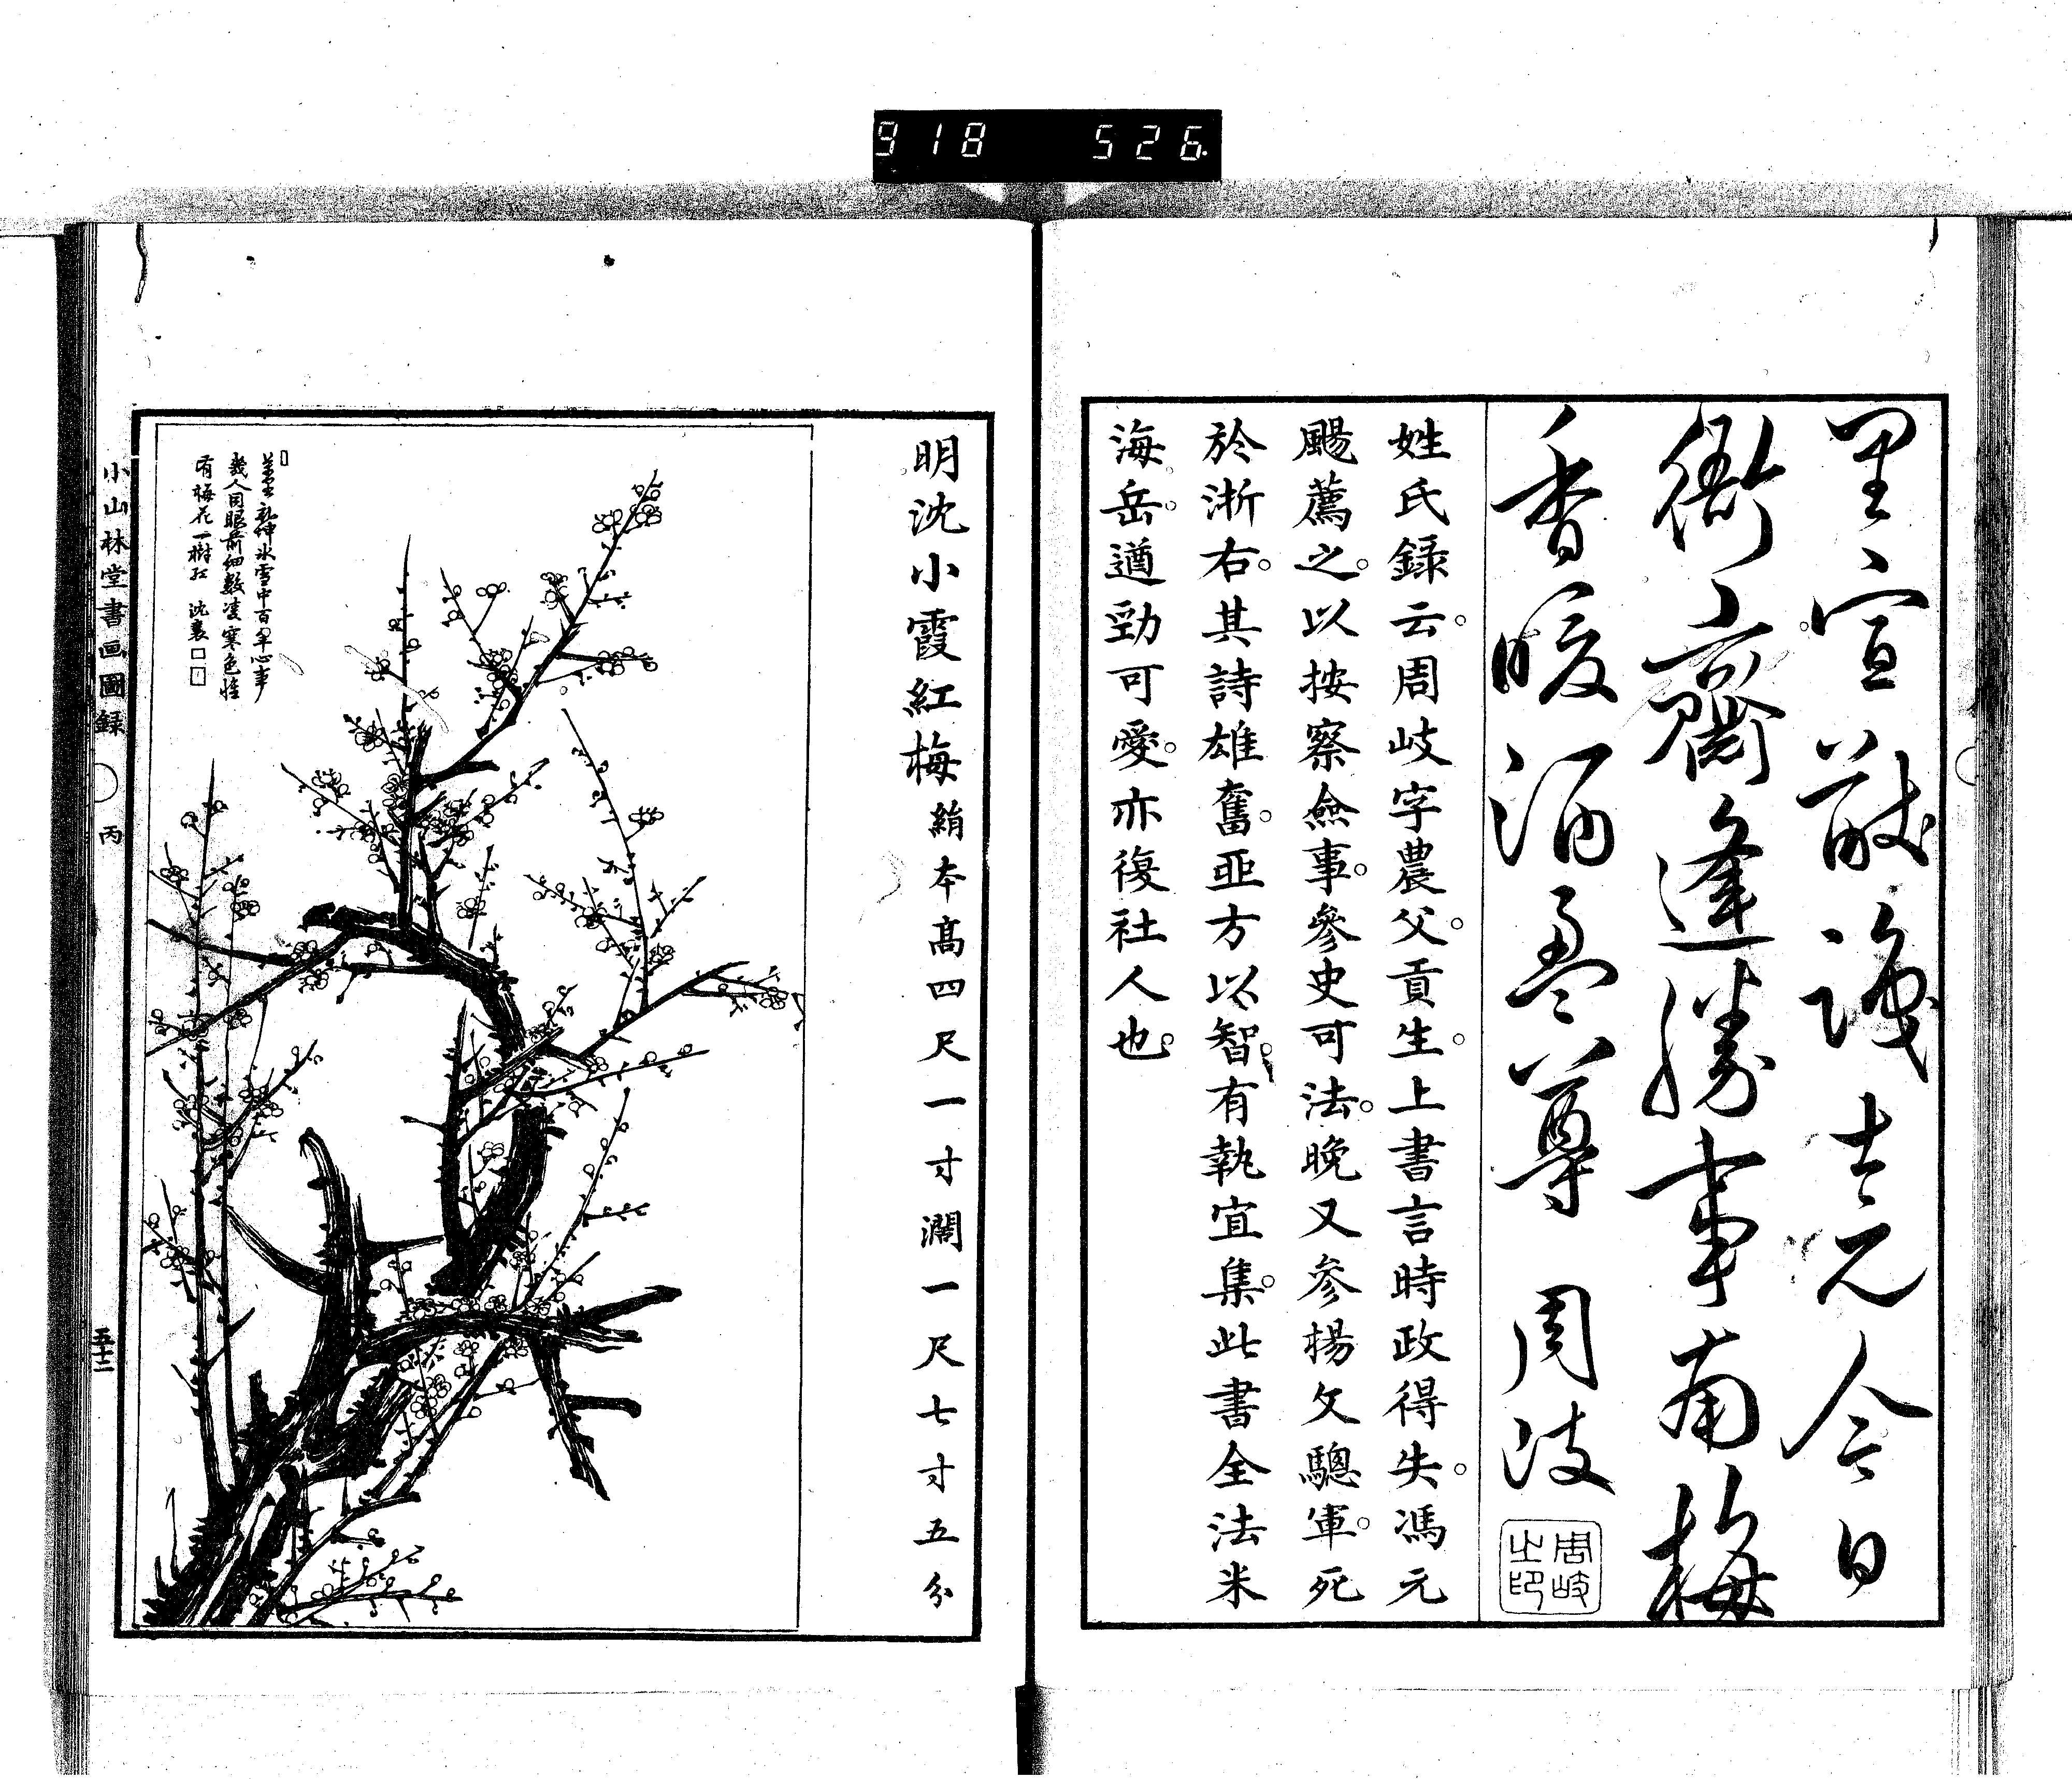 918 526
里宣猷識吉元今日
衙齋逢勝事南梅
香暖酒盈尊 周岐
周岐之印
姓氏録云周岐字農父貢生上書言時政得失馮元
颺薦之以按察僉事參史可法晚又参楊文驄軍死
於浙右其詩雄奮亜方以智有執宜集此書全法米
海岳遒勁可愛亦復社人也
明沈小霞紅梅絹本高四尺一寸濶一尺七寸五分
氷雪中百年心事
幾人同眼前細數凌寒色惟
有梅花一樹紅 沈襄
小山林堂書画圖録 丙 五十二